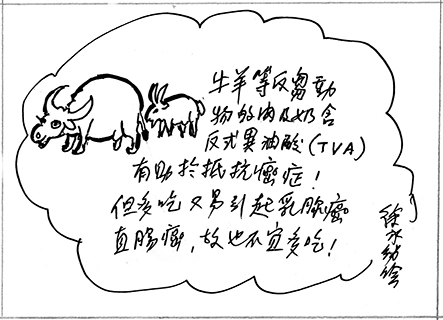 牛羊等反芻動
物的肉及奶含
反式異油酸(TVA)
有助於抵抗癌症!
但多吃又易引起乳腺癌
直腸癌,故也不宜多吃!
徐永幼绘